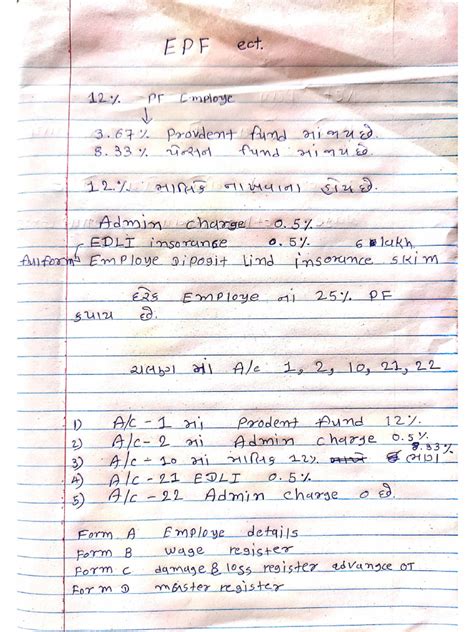 EPF ect.
12% PF Employe
3.67% Provdent fund માં જાય છે.
8.33% પેન્સન fund માં જાય છે.
12.% માલિક નાખવાના હોય છે.
Admin charge 0.5%
EDLI insorance 0.5% 6 lakh
fullform Employe Diposit Lind insorance skim
દરેક Employe નાં 25% PF
કપાય છે.
ચલણ માં A/c 1, 2, 10, 21, 22
1) A/c - 1 માં Prodent fund 12%
2) A/c - 2 માં Admin charge 0.5%
3) A/c - 10 માં માલિક 12% 8.33% ભાગ
4) A/c - 21 EDLI 0.5%
5) A/c - 22 Admin charge 0 છે.
Form A Employe details
Form B wage register
Form C damage & loss register advange OT
Form D master register